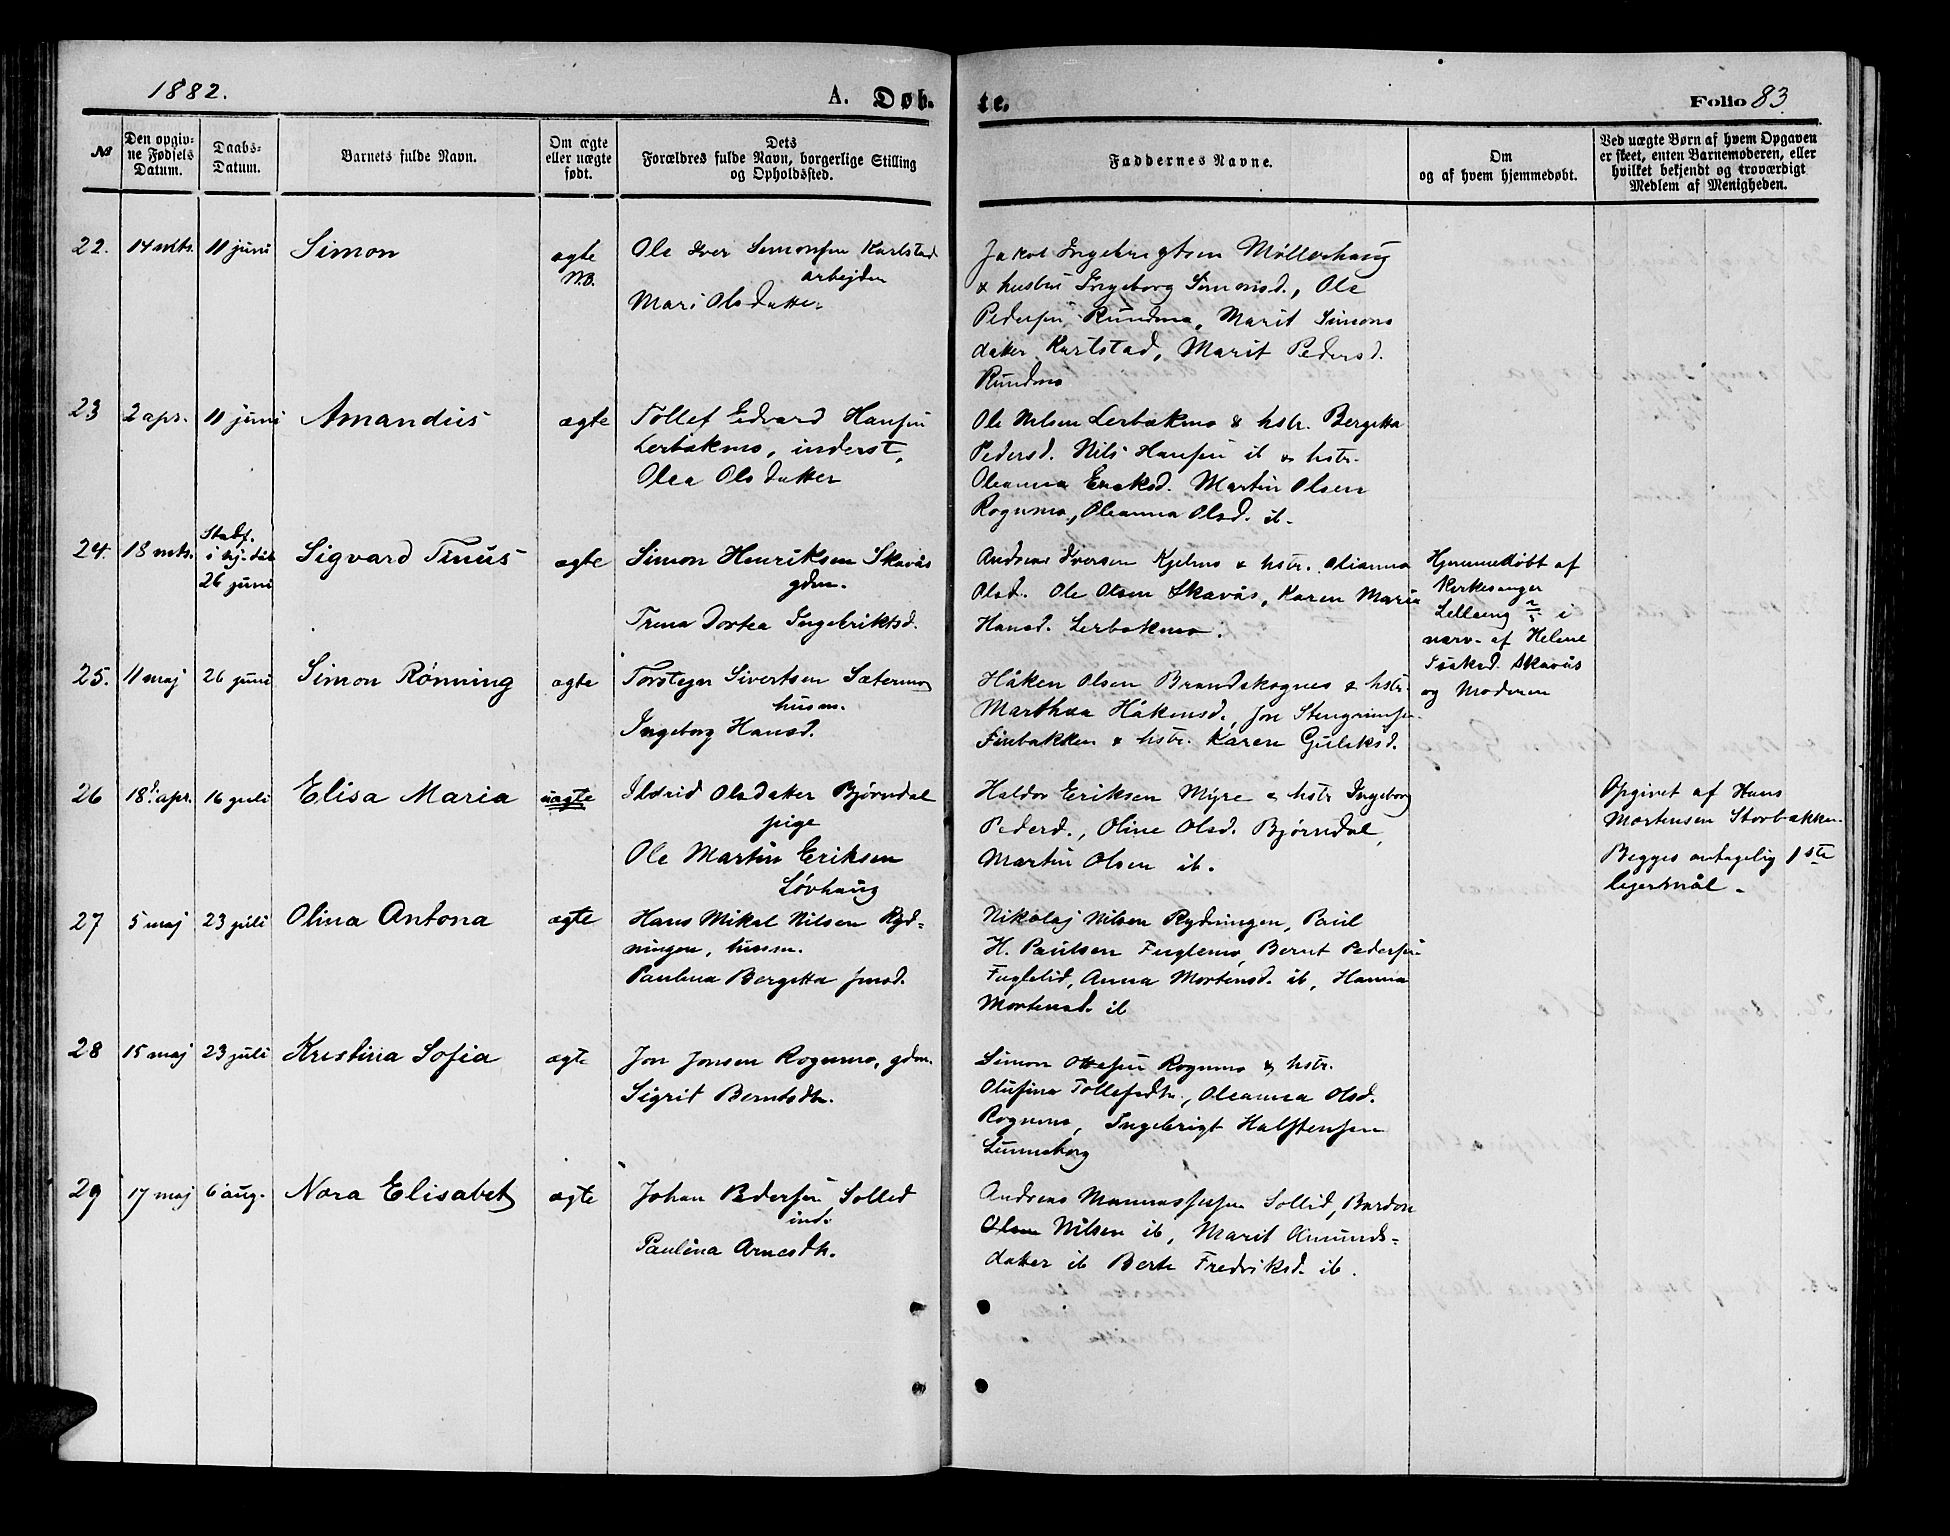 1882.
A. Døb-
te.
Folio 83
№
Den opgiv-
ne Fødsels
Datum.
Daabs-
Datum.
Barnets fulde Navn.
Om ægte
eller uægte
født.
Dets
Forældres fulde Navn, borgerlige Stilling
og Opholdssted.
Faddernes Navne.
Om
og af hvem hjemmedøbt.
Ved uægte Børn af hvem Opgaven
er skeet, enten Barnemoderen, eller
hvilket bekjendt og troværdigt
Medlem af Menigheden.
22.
14 mts.
11 juni
Simon
ægte
N.B.
Ole Iver Simonsen Karlstad
arbejder
Mari Olsdatter
Jakob Ingebrigtsen Møllerhaug
& hustru Ingeborg Simonsd., Ole
Pedersen Rundmo, Marit Simons
datter Karlstad, Marit Pedersd.
Rundmo
23
2 apr.
11 juni
Amandus
ægte
Tollef Edvard Hansen
Lerbakmo, inderst,
Olea Olsdatter
Ole Nilsen Lerbakmo & hstr. Bergitta
Pedersd. Nils Hansen ib & hstr.
Oleanna Eriksd. Martin Olsen
Rognmo, Oleanna Olsd. ib.
24.
18 mts.
Stadf.
i hj. dåb
26 juni
Sigvard Tinus
ægte
Simon Henriksen Skavås
gdm.
Trina Dortea Ingebriktsd.
Andreas Iversen Kjelmo & hstr. Olianna
Olsd. Ole Olsen Skavås, Karen Maria
Hansd. Lerbakmo.
Hjemmedøbt af
Kirkesanger
Lilleeng i
nærv. af Helene
Isaksd. Skavås
og Moderen
25.
11 maj
26 juni
Simon Rønning
ægte
Torstejn Sivertsen Sætermo
husm.
Ingeborg Hansd.
Håken Olsen Brandskognes & hstr.
Marthea Håkensd., Jon Stengrimsen
Finbakken & hstr. Karen Gulaksd.
26
18. apr.
16 juli
Elisa Maria
uægte
Ildrid Olsdatter Bjørndal
pige
Ole Martin Eriksen
Løvhaug
Haldor Eriksen Myre & hstr Ingeborg
Pedersd., Oline Olsd. Bjørndal,
Martin Olsen ib.
Opgivet af Hans
Mortensen Storbakken.
Begges antagelig 1ste
lejermål.
27
5 maj
23 juli
Olina Antona
ægte
Hans Mikal Nilsen Ryd-
ningen, husm.
Paulina Bergitta Jensd.
Nikolaj Nilsen Rydningen, Paul
H. Paulsen Fuglemo, Bernt Pedersen
Fuglelid, Anna Mortensd. ib, Hanna
Mortensd. ib
28
15 maj
23 juli
Kristina Sofia
ægte
Jon Jonsen Rognmo, gdm.
Sigrid Berntsdtr.
Simon Ottesen Rognmo & hstr.
Olufina Tollefsdtr., Oleanna Olsd.
Rognmo, Ingebrigt Halstensen
Lunneborg
29
17 maj
6 aug.
Nora Elisabet
ægte
Johan Pedersen Sollid
ind.
Paulina Arnesdtr.
Andreas Mannassesen Sollid, Bardon
Olsen Nilsen ib, Marit Amunds-
datter ib Berte Fredriksd. ib.